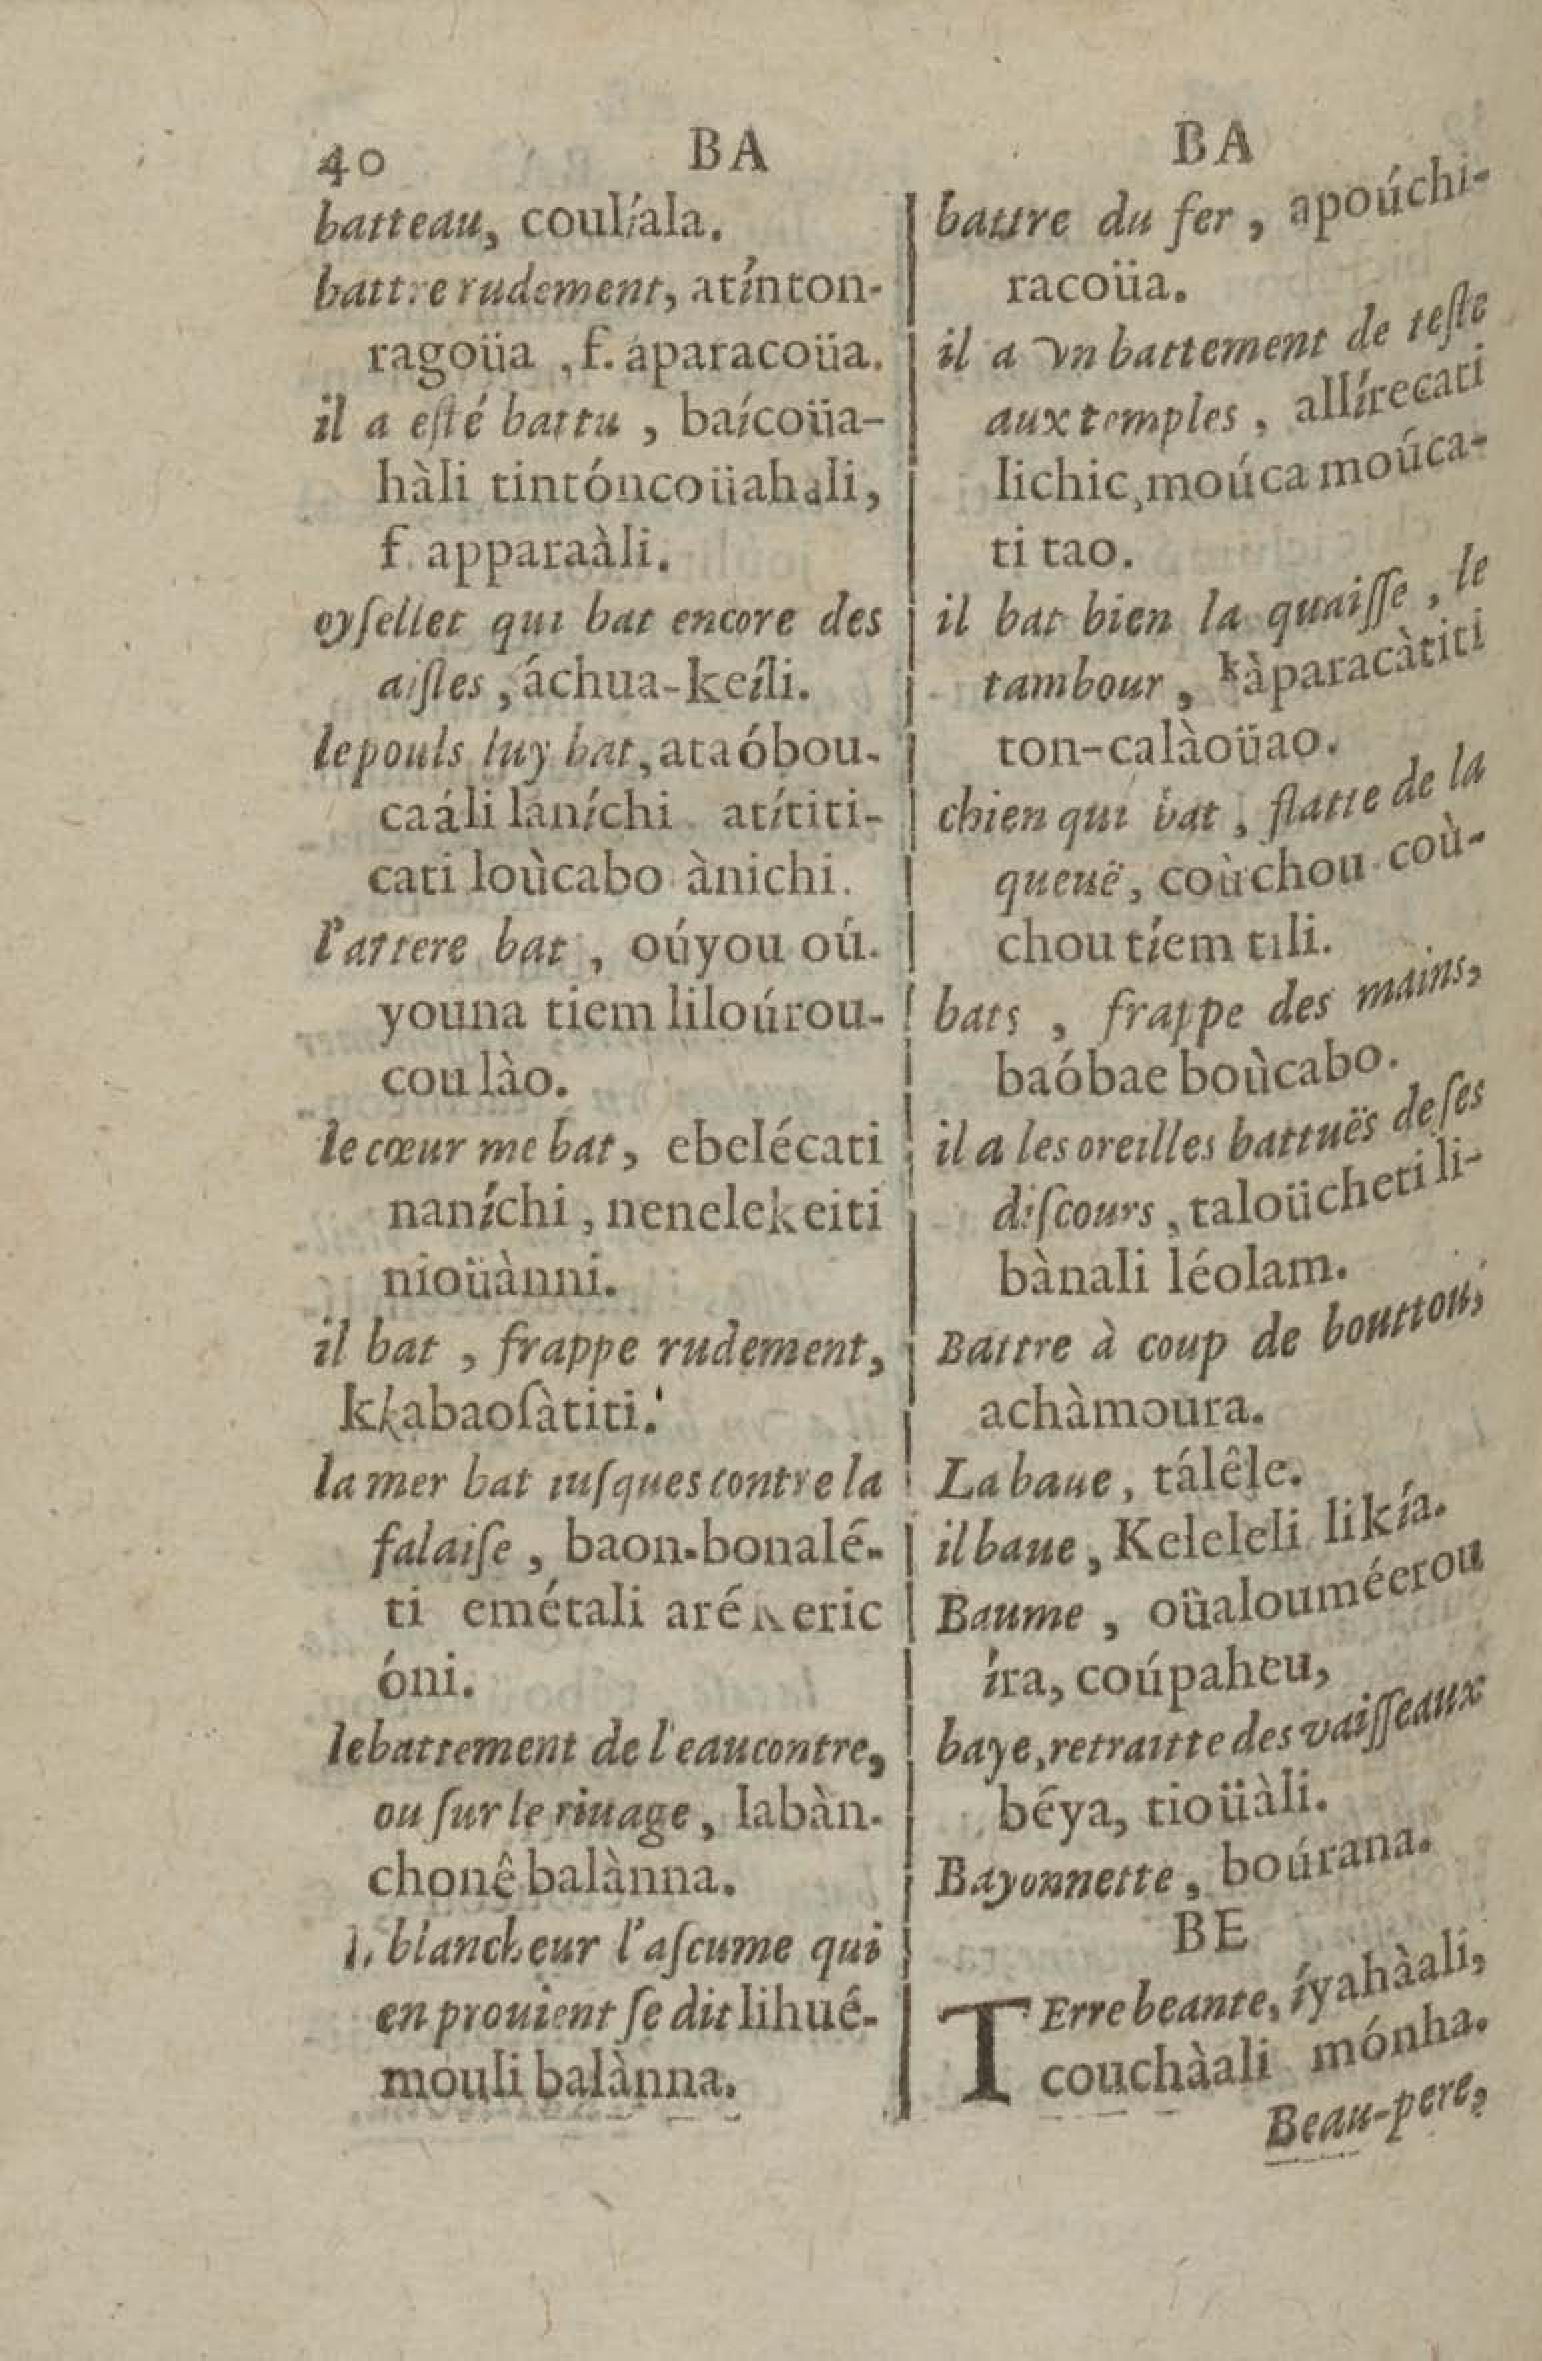 40 BA BA
batteau, coulíala.
battre rudement, atínton-
ragoüa, f. áparacoüa.
il a eſté battu, baícoüa-
hàli tintóncoüahali,
f. apparaàli.
oyſellet qui bat encore des
aiſles, áchua-keíli.
le pouls luy bat, ataóbou-
caáli lániíchi atítiti-
cati loùcabo ànichi.
l'attere bat, oúyou oú-
youna tiem liloúrou-
cou lào.
le cœur me bat, ebelécati
naníchi, nenelekeiti
nioüànni.
il bat, frappe rudement,
kkabaoſàtiti.
la mer bat iuſques contre la
falaiſe, baon-bonalé-
ti emétali arékeric
óni.
le battement de l'eau contre,
ou ſur le riuage, labàn-
chonê balànna.
l. blancheur l'aſcume qui
en prouient ſe dit lihué-
mouli balànna.
battre du fer, apoúchi-
racoüa.
il a vn battement de teſte
aux temples, allírecati
lichic, moúca moúca-
ti tao.
il bat bien la quaiſſe, le
tambour, kàparacàtiti
ton-calàoüao.
chien qui bat, flatte de la
queuë, coùchou coù-
chou tíem tili.
bats, frappe des mains,
baóbae boùcabo.
il a les oreilles battuës de ſes
diſcours, taloücheti li-
bànali léolam.
Battre à coup de boutton,
achàmoura.
La baue, tálêle.
il baue, Keleleli likía.
Baume, oüaloumeérou
íra, coúpaheu,
baye, retraitte des vaiſſeaux
béya, tioüàli.
Bayonnette, boúrana.
BE
TErre beante, íyahàali,
couchàali mónha.
Beau-pere,